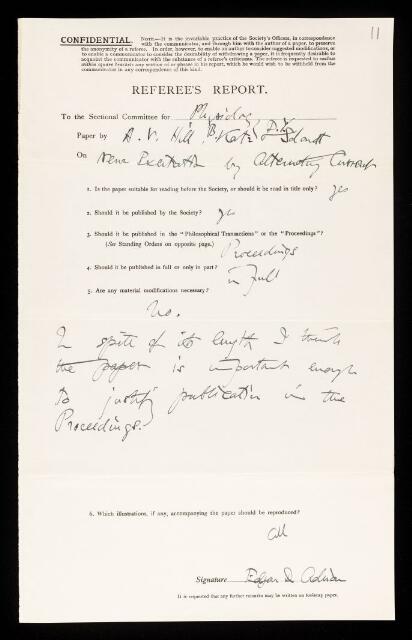 11
CONFIDENTIAL.
NOTE.—It is the invariable practice of the Society's Officers, in correspondence
with the communicator, and through him with the author of a paper, to preserve
the anonymity of a referee. In order, however, to enable an author to consider suggested modifications, or
to enable a communicator to consider the desirability of withdrawing a paper, it is frequently desirable to
acquaint the communicator with the substance of a referee's criticisms. The referee is requested to enclose
within square brackets any section or phrase in his report, which he would wish to be withheld from the
communicator in any correspondence of this kind.
REFEREE'S REPORT.
To the Sectional Committee for Physiology
Paper by A. V. Hill, B. Katz & D. Y. Solandt
On Nerve Excitation by Alternating Current
1. Is the paper suitable for reading before the Society, or should it be read in title only? yes
2. Should it be published by the Society? yes
3. Should it be published in the "Philosophical Transactions" or the "Proceedings"?
(See Standing Orders on opposite page.) Proceedings
4. Should it be published in full or only in part? in full
5. Are any material modifications necessary?
No.
In spite of its length I think
the paper is important enough
to justify publication in the
Proceedings.
6. Which illustrations, if any, accompanying the paper should be reproduced?
all
Signature Edgar D. Adrian
It is requested that any further remarks may be written on foolscap paper.